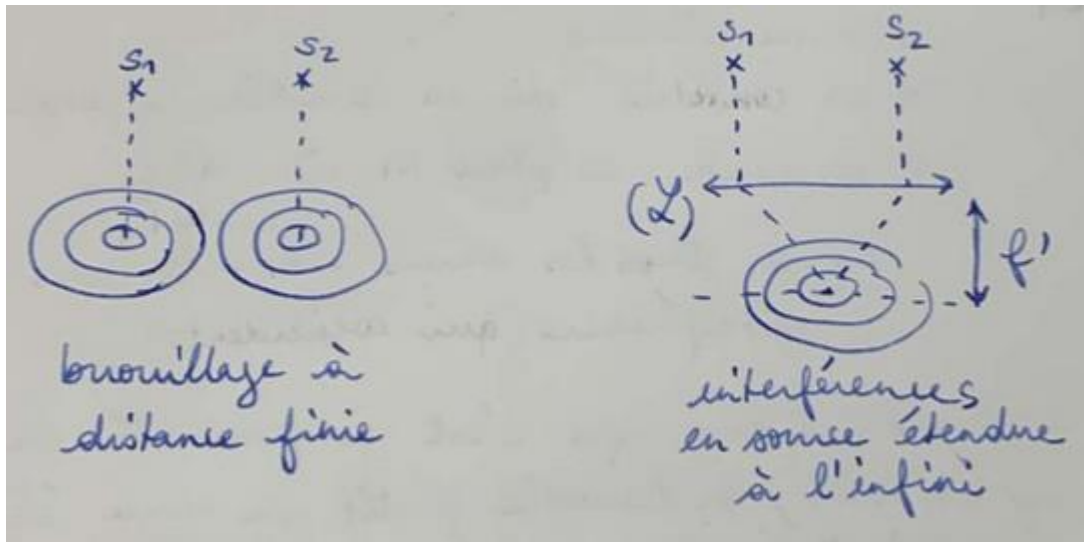 S1
S2
brouillage à
distance finie
S1
S2
(L)
f'
interférences
en source étendue
à l'infini